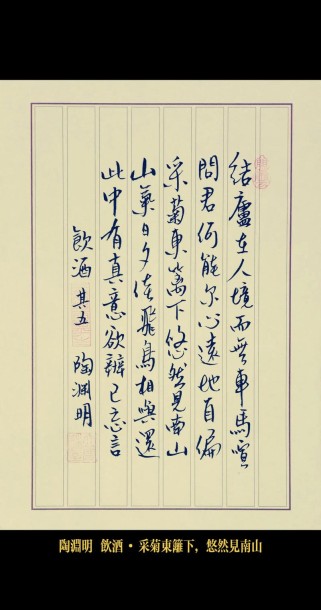 結廬在人境而無車馬喧
問君何能尔心遠地自偏
采菊東篱下悠然見南山
山氣日夕佳飛鳥相與還
此中有真意欲辨已忘言
飲酒 其五 陶淵明
陶淵明 飲酒·采菊東籬下，悠然見南山